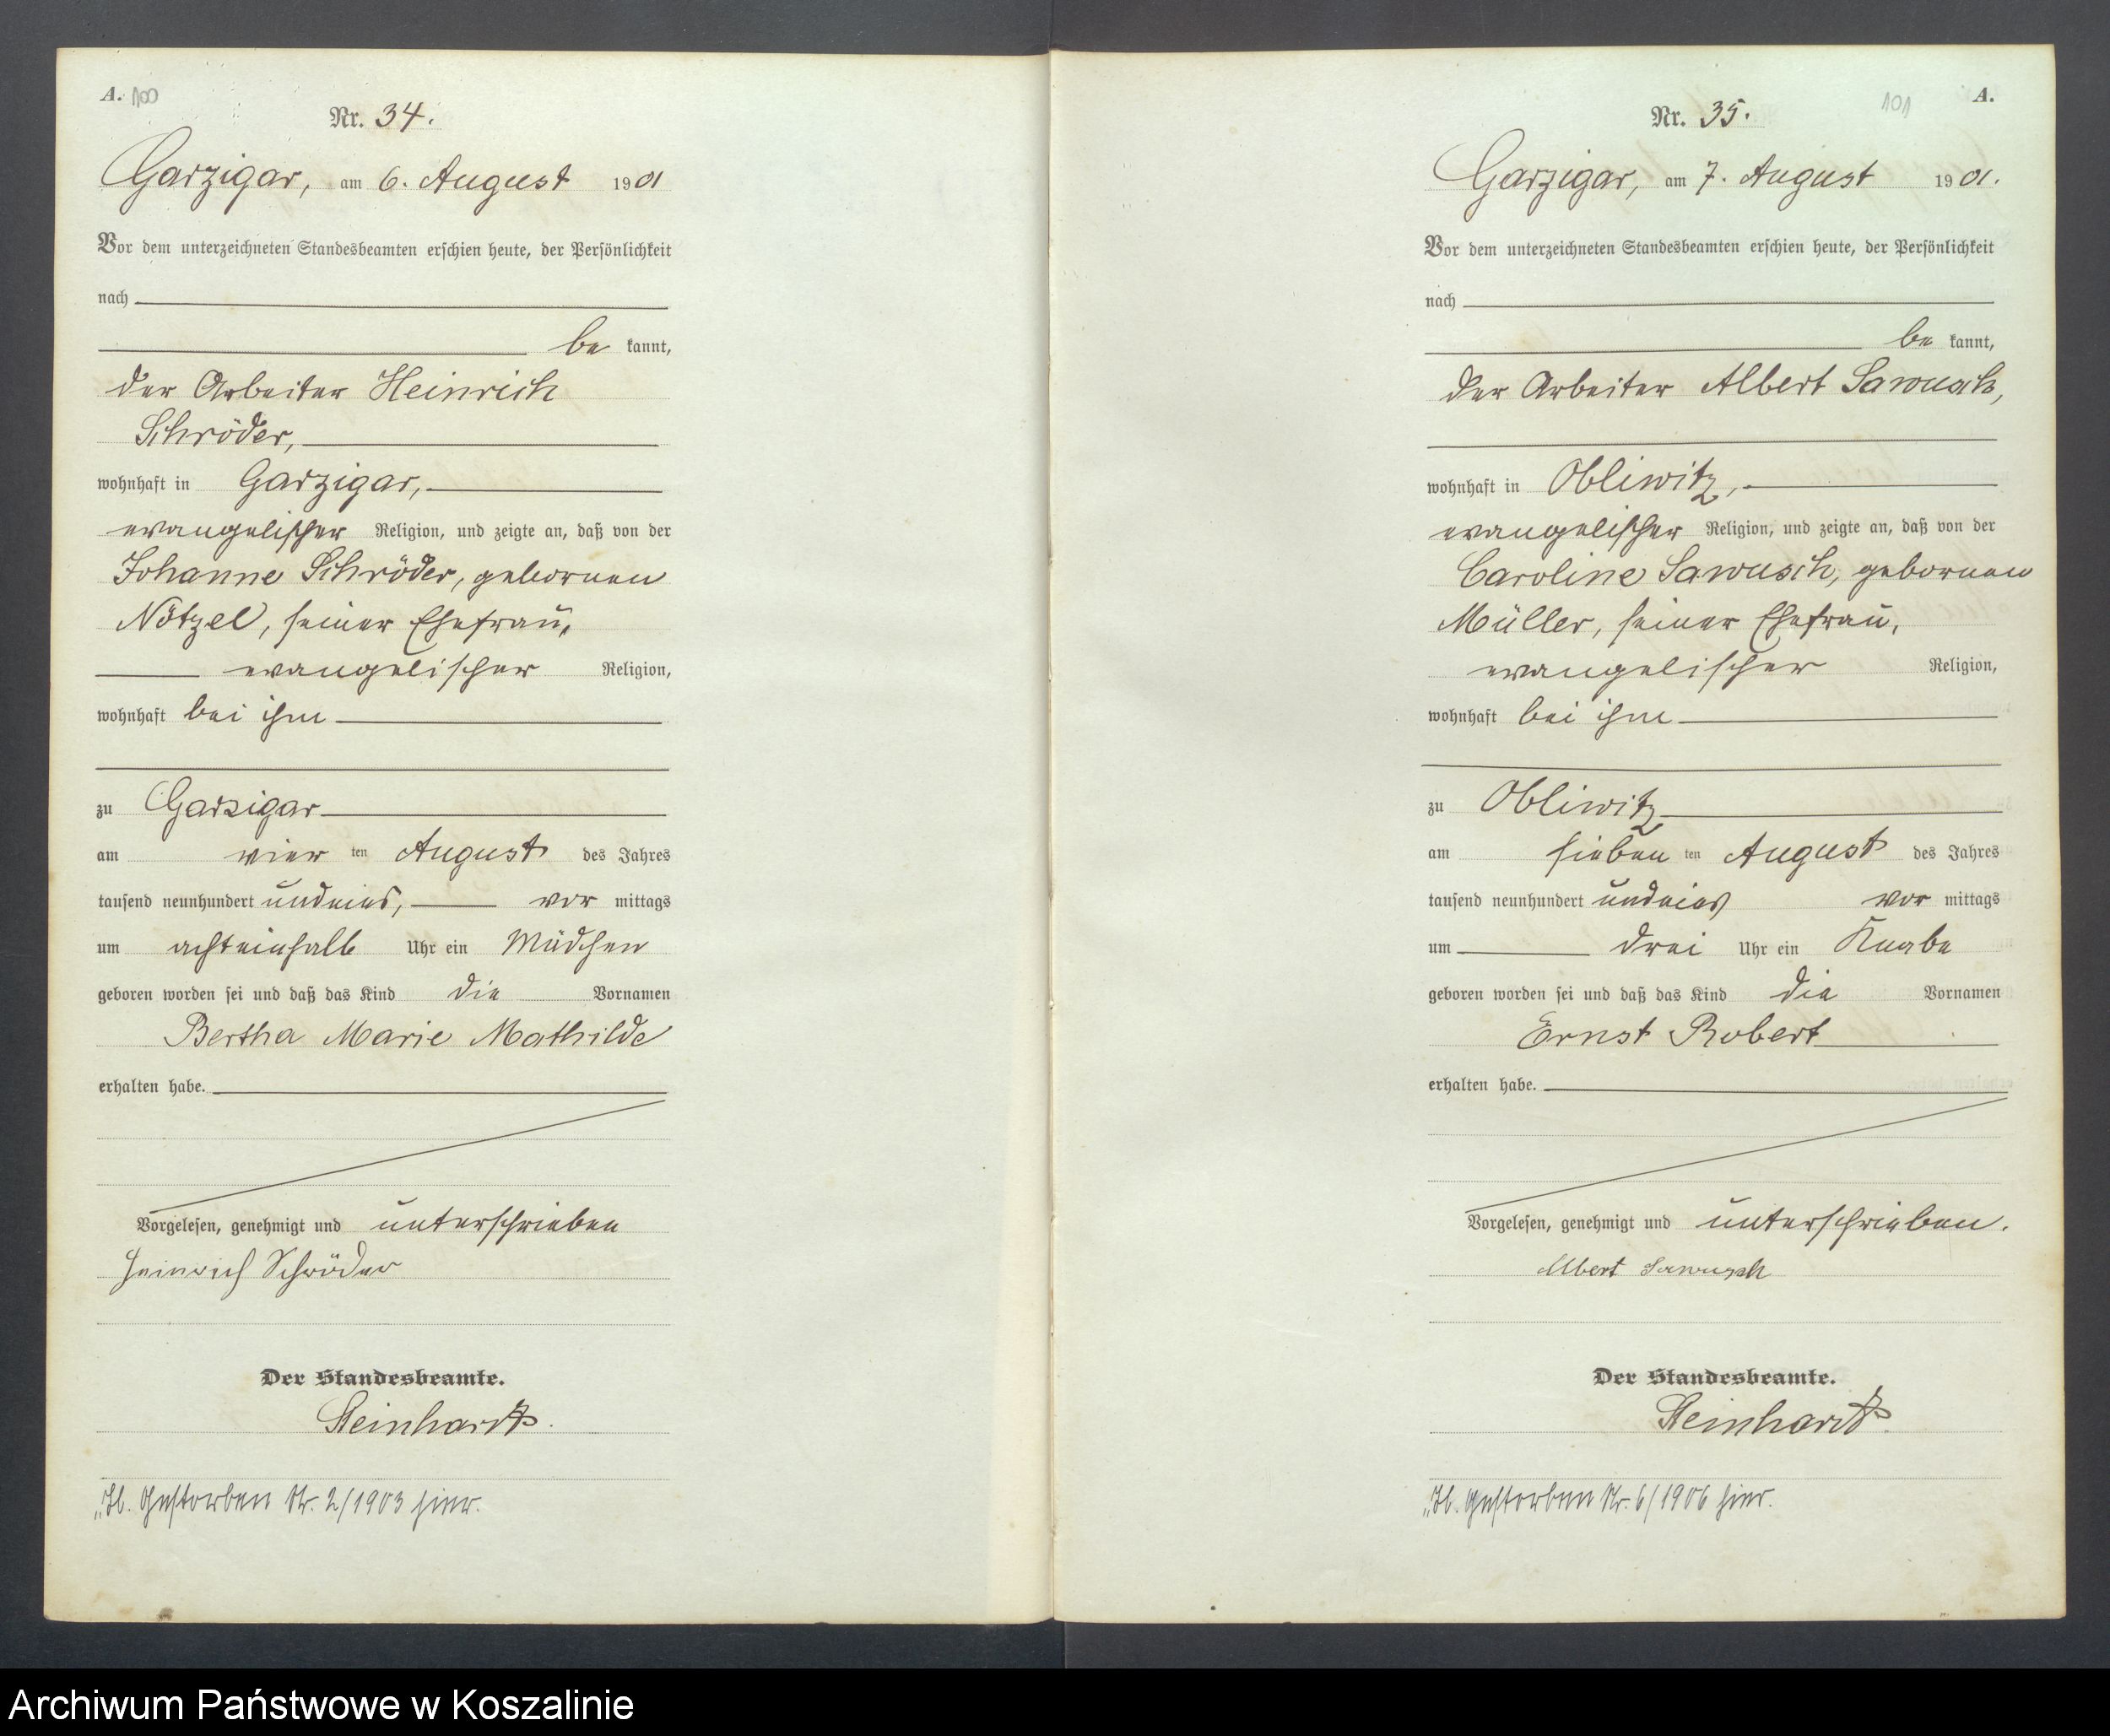 A. 100
Nr. 34.
Garzigar, am 6. August 1901
Vor dem unterzeichneten Standesbeamten erschien heute, der Persönlichkeit
nach
be kannt,
der Arbeiter Heinrich
Schröder,
wohnhaft in Garzigar,
evangelischer Religion, und zeigte an, daß von der
Johanne Schröder, geborenen
Nötzel, seiner Ehefrau,
evangelischer Religion,
wohnhaft bei ihm
zu Garzigar
am vier ten August des Jahres
tausend neunhundert undeins, vor mittags
um achteinhalb Uhr ein Mädchen
geboren worden sei und daß das Kind die Vornamen
Bertha Marie Mathilde
erhalten habe.
Vorgelesen, genehmigt und unterschrieben
Heinrich Schröder
Der Standesbeamte.
Steinhardt.
Gestorben Nr. 2/1903 hier.
101 A.
Nr. 35.
Garzigar, am 7. August 1901.
Vor dem unterzeichneten Standesbeamten erschien heute, der Persönlichkeit
nach
be kannt,
der Arbeiter Albert Sawusch,
wohnhaft in Obliwitz,
evangelischer Religion, und zeigte an, daß von der
Caroline Sawusch, geborenen
Müller, seiner Ehefrau,
evangelischer Religion,
wohnhaft bei ihm
zu Obliwitz
am sieben ten August des Jahres
tausend neunhundert undeins vor mittags
um drei Uhr ein Knabe
geboren worden sei und daß das Kind die Vornamen
Ernst Robert
erhalten habe.
Vorgelesen, genehmigt und unterschrieben.
Albert Sawusch
Der Standesbeamte.
Steinhardt.
Gestorben Nr. 6/1906 hier.
Archiwum Państwowe w Koszalinie